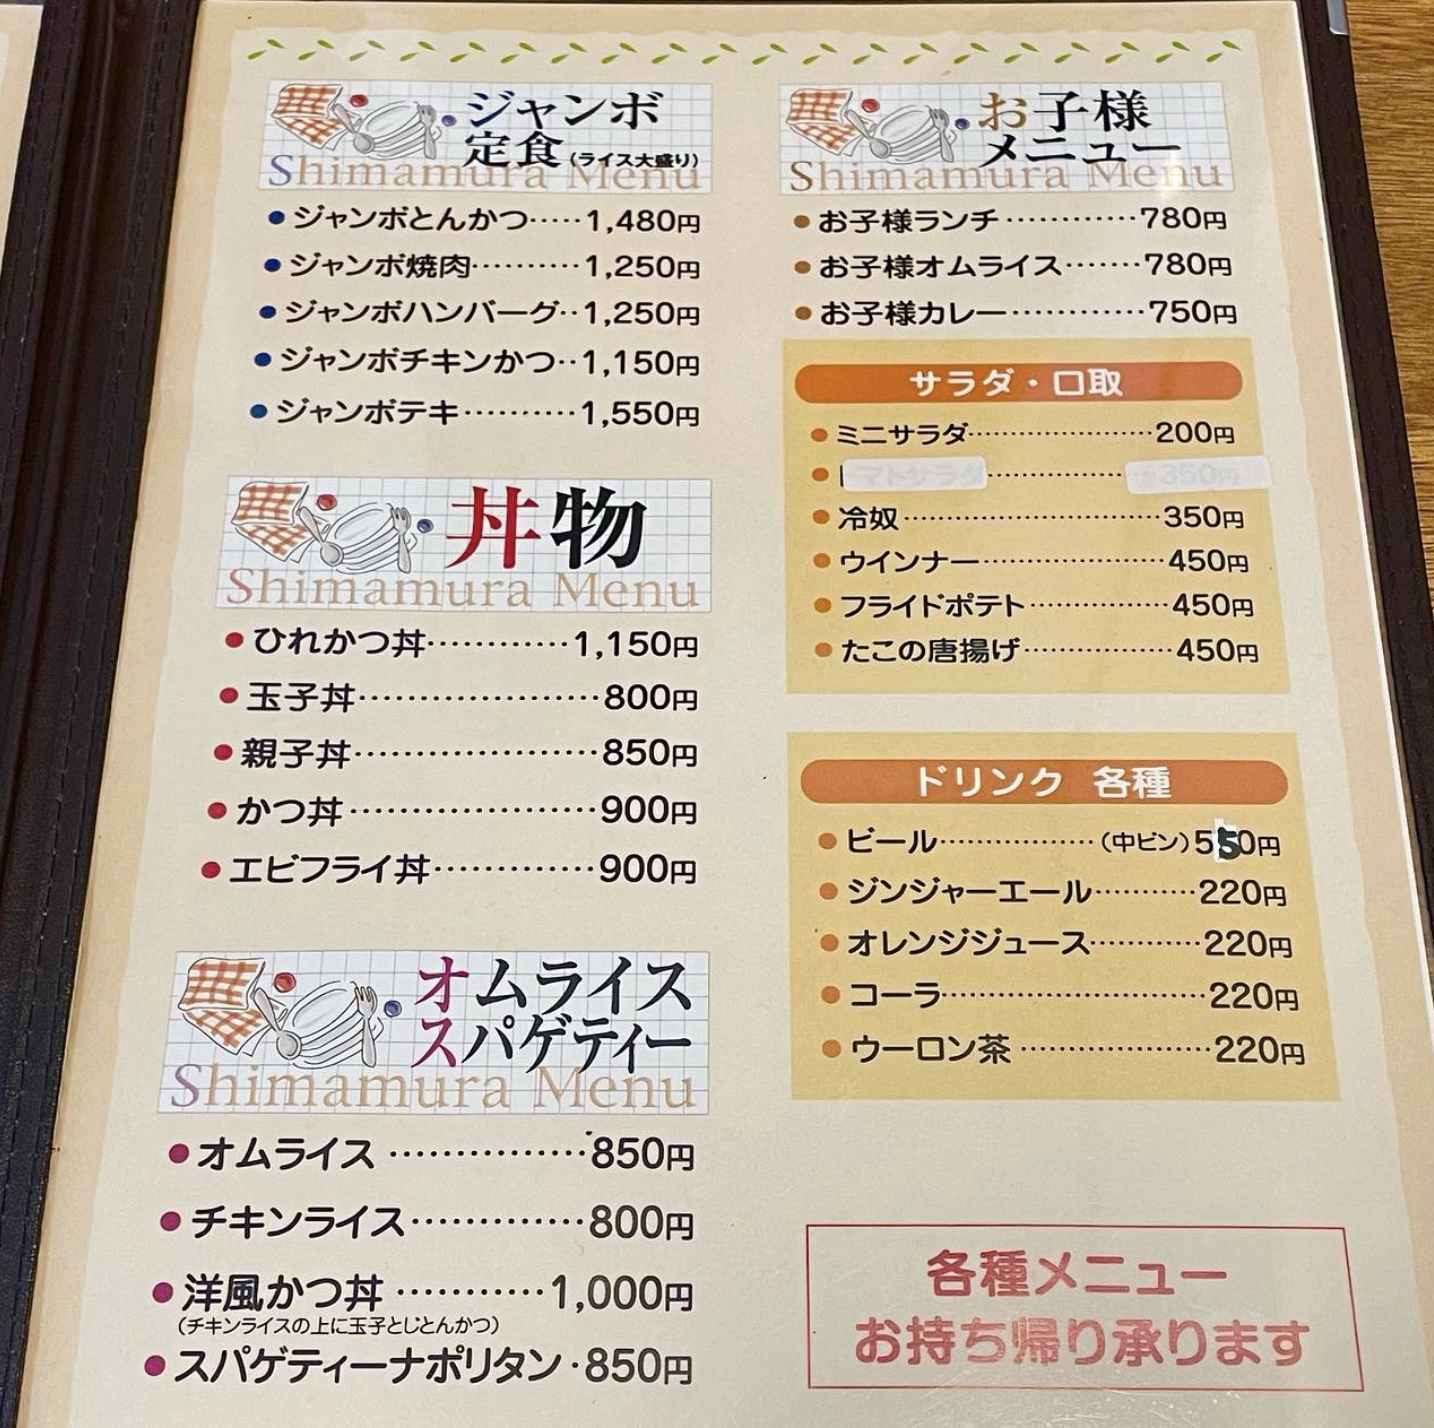 ジャンボ
定食(ライス大盛り)
Shimamura Menu
●ジャンボとんかつ·····1,480円
●ジャンボ焼肉··········1,250円
●ジャンボハンバーグ··1,250円
●ジャンボチキンかつ··1,150円
●ジャンボテキ··········1,550円
丼物
Shimamura Menu
●ひれかつ丼············1,150円
●玉子丼····················800円
●親子丼····················850円
●かつ丼····················900円
●エビフライ丼·············900円
オムライス
スパゲティー
Shimamura Menu
●オムライス ···············850円
●チキンライス·············800円
●洋風かつ丼 ···········1,000円
(チキンライスの上に玉子とじとんかつ)
●スパゲティーナポリタン·850円
お子様
メニュー
Shimamura Menu
●お子様ランチ············780円
●お子様オムライス·······780円
●お子様カレー············750円
サラダ・口取
●ミニサラダ····················200円
●トマトサラダ···············350円
●冷奴····························350円
●ウインナー····················450円
●フライドポテト···············450円
●たこの唐揚げ················450円
ドリンク 各種
●ビール················(中ビン)550円
●ジンジャーエール··········220円
●オレンジジュース···········220円
●コーラ··························220円
●ウーロン茶 ···················220円
各種メニュー
お持ち帰り承ります